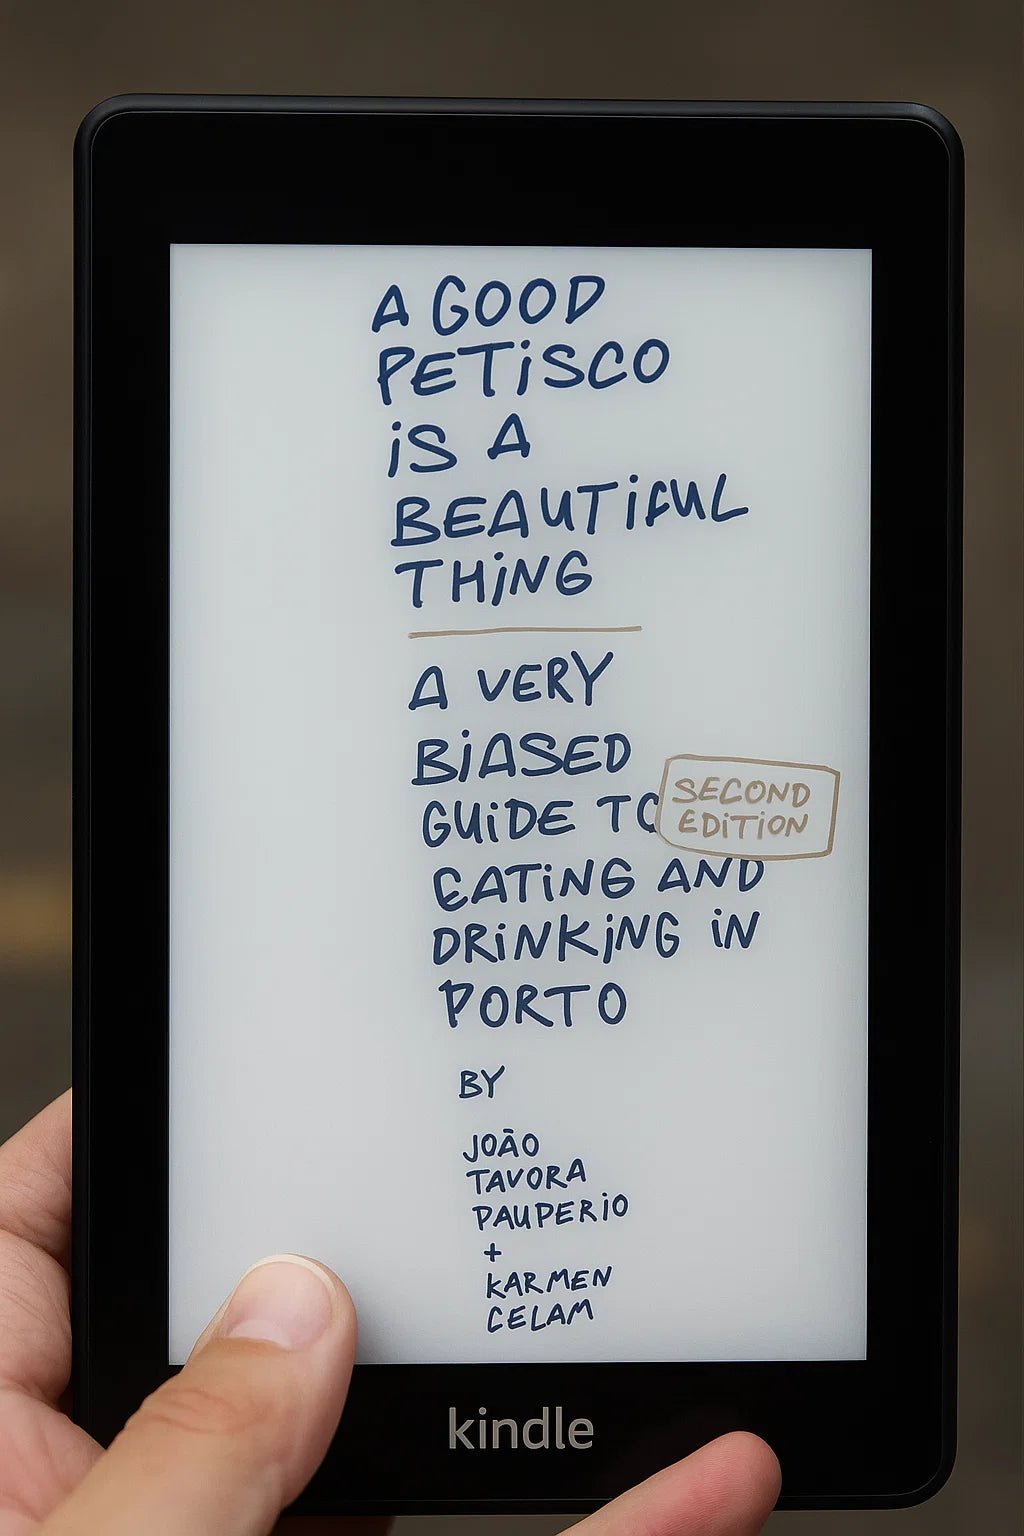 A GOOD
PETISCO
IS A
BEAUTIFUL
THING
A VERY
BIASED
GUIDE TO
SECOND
EDITION
EATING AND
DRINKING IN
PORTO
BY
JOÃO
TAVORA
PAUPERIO
+
KARMEN
CELAM
kindle